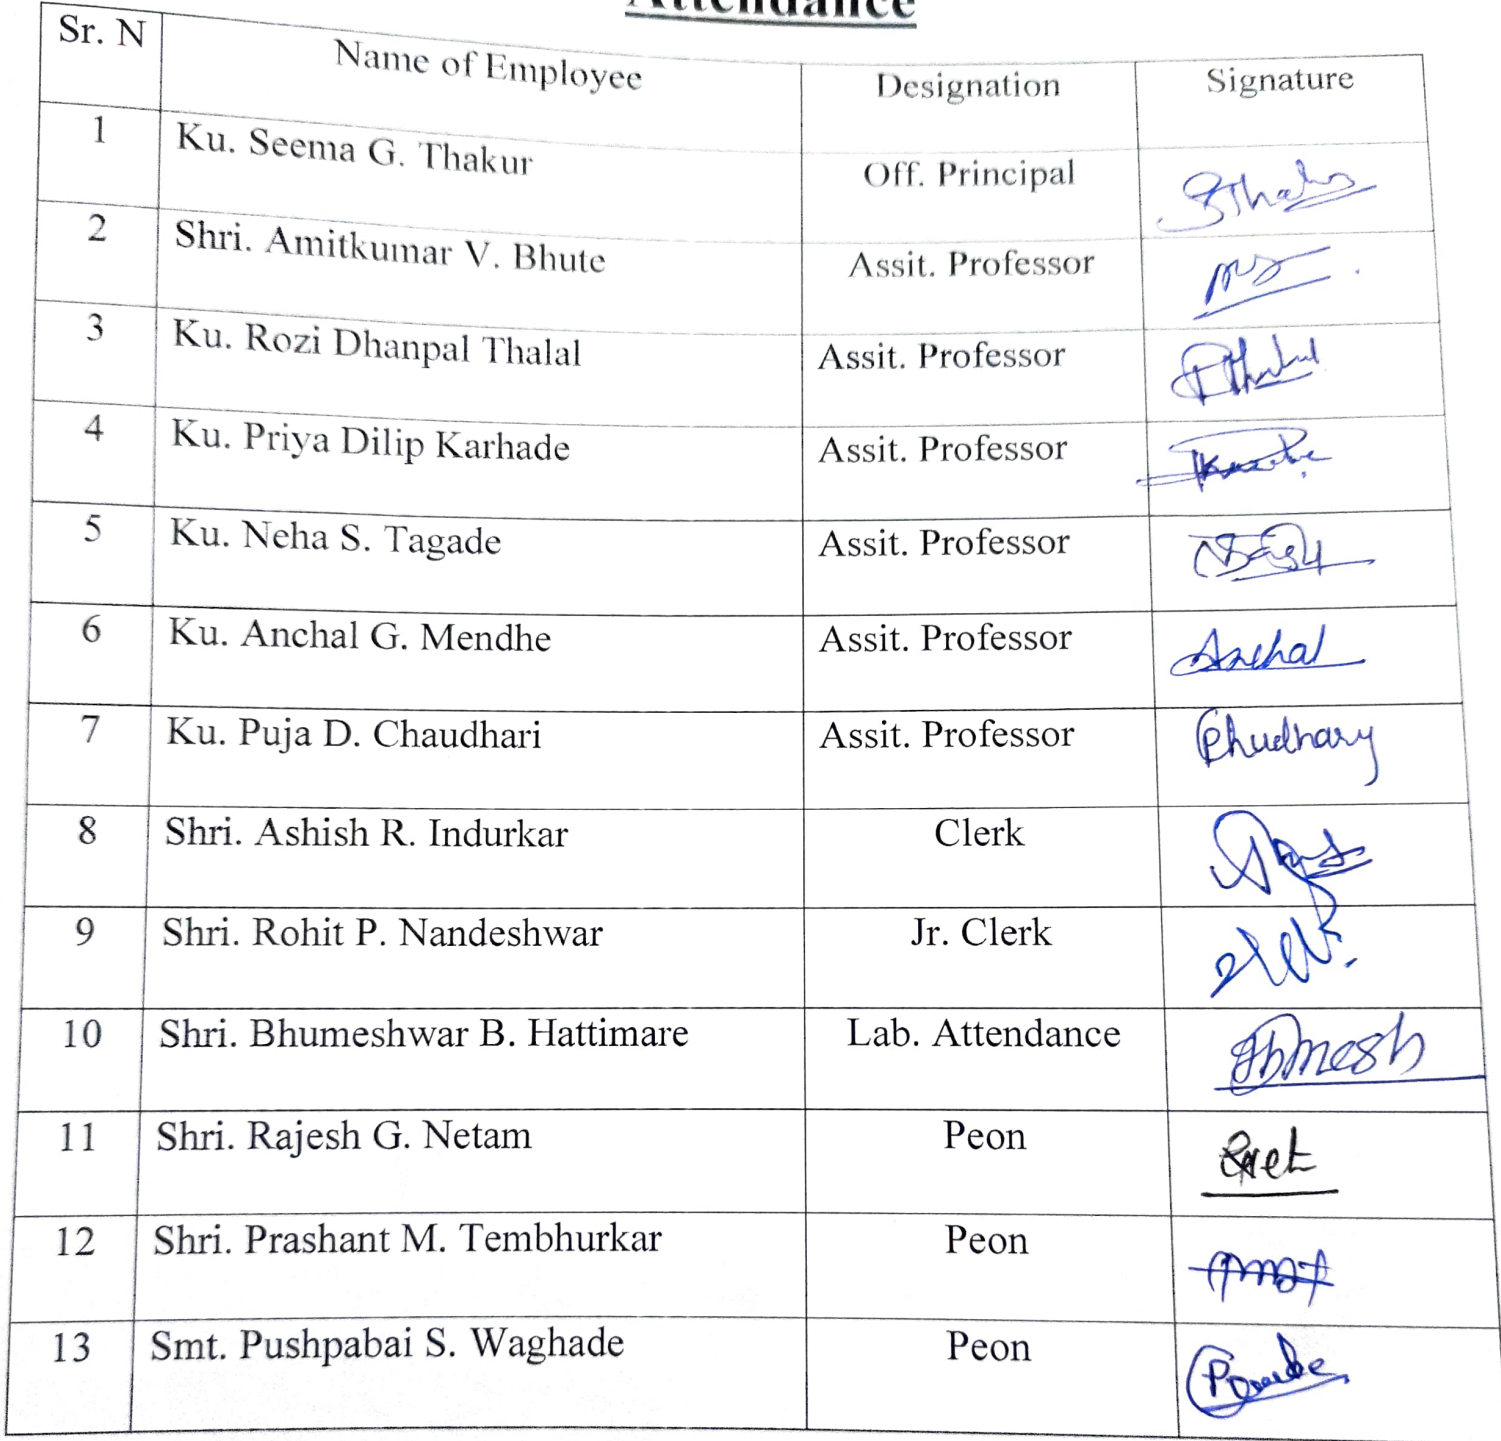 Attendance
Sr. N Name of Employee Designation Signature
1 Ku. Seema G. Thakur Off. Principal
2 Shri. Amitkumar V. Bhute Assit. Professor
3 Ku. Rozi Dhanpal Thalal Assit. Professor
4 Ku. Priya Dilip Karhade Assit. Professor
5 Ku. Neha S. Tagade Assit. Professor
6 Ku. Anchal G. Mendhe Assit. Professor Anchal
7 Ku. Puja D. Chaudhari Assit. Professor
8 Shri. Ashish R. Indurkar Clerk
9 Shri. Rohit P. Nandeshwar Jr. Clerk
10 Shri. Bhumeshwar B. Hattimare Lab. Attendance
11 Shri. Rajesh G. Netam Peon
12 Shri. Prashant M. Tembhurkar Peon
13 Smt. Pushpabai S. Waghade Peon